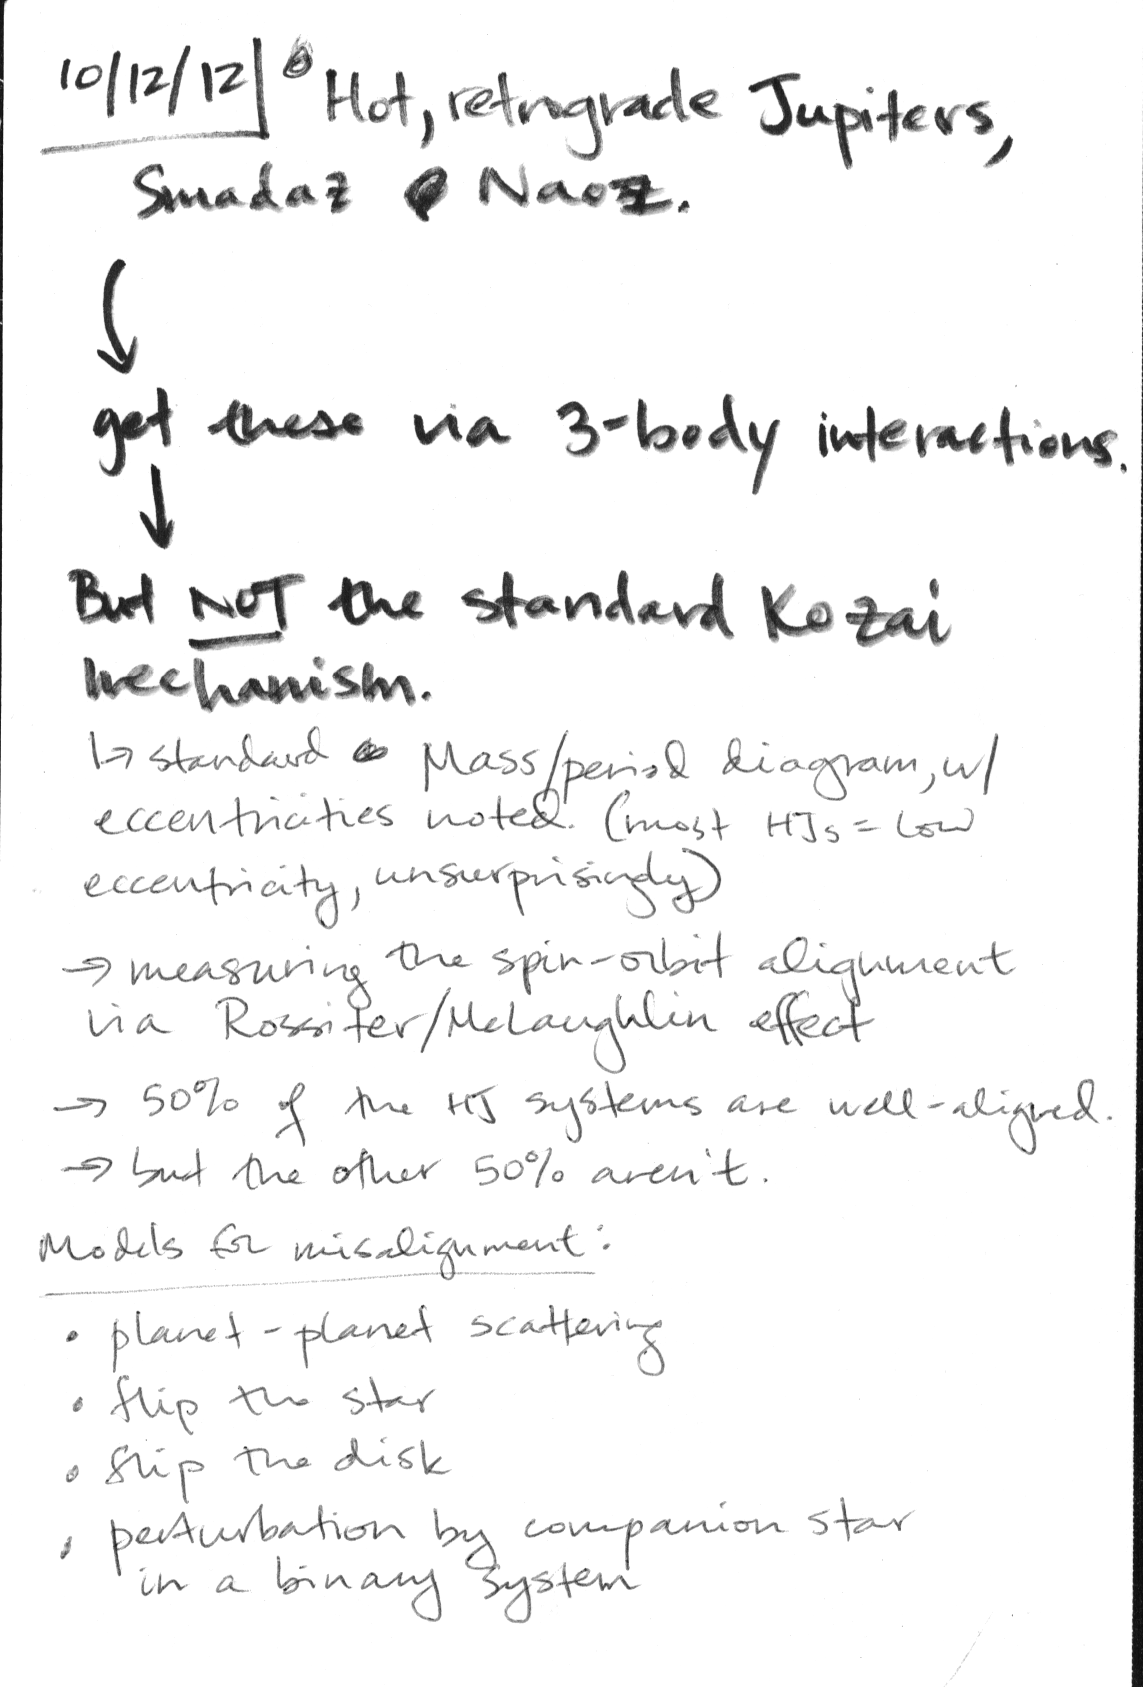 10/12/12 Hot, retrograde Jupiters,
Smadaz Naoz.
get these via 3-body interactions.
But NOT the standard Kozai
mechanism.
↳ standard Mass/period diagram, w/
eccentricities noted. (most HJs = low
eccentricity, unsurprisingly)
→ measuring the spin-orbit alignment
via Rossiter/McLaughlin effect
→ 50% of the HJ systems are well-aligned.
→ but the other 50% aren't.
Models for misalignment:
• planet-planet scattering
• flip the star
• flip the disk
• perturbation by companion star
in a binary system